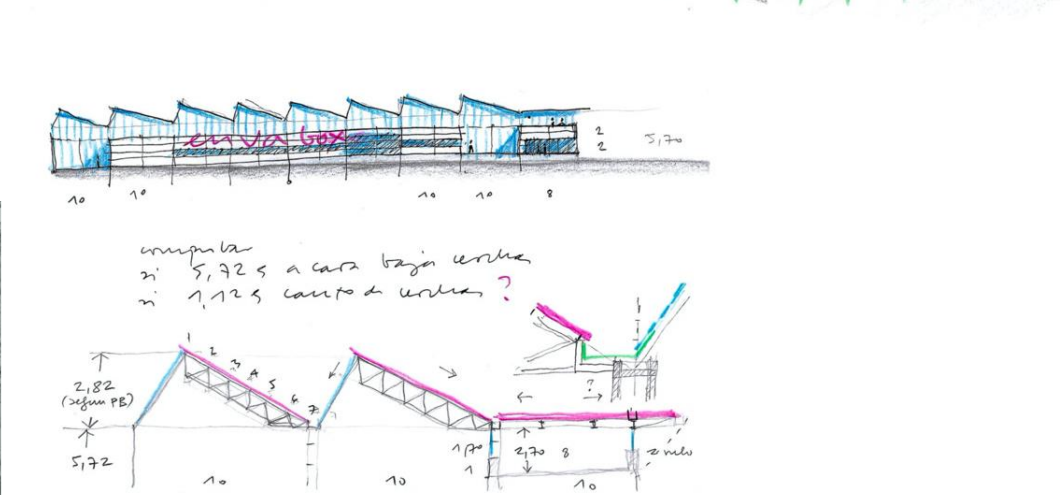 enva box
2
2 5,70
10 10 10 10 8
comprobar
si 5,72 s a cara baja cerchas
si 1,12 s canto de cerchas ?
1 2 3 4 5 6 7
2,82
(según PB)
5,72
?
1,70 2,70 8
1
10 10 10